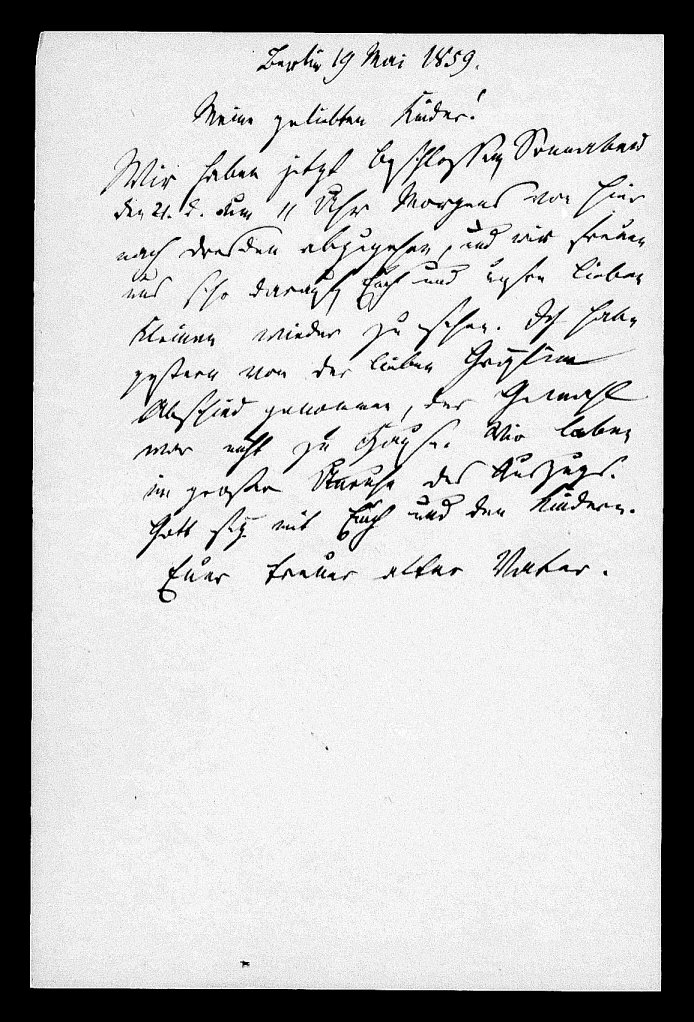 Berlin 19 Mai 1859.
Meine geliebten Kinder!
Wir haben jetzt beschlossen Sonnabend
den 21. d. um 11 Uhr Morgens von hier
nach Dresden abzugehen, und wir freuen
uns sehr darauf Euch und unsre lieben
Kleinen wieder zu sehen. Ich habe
gestern von der lieben Gräfin
Abschied genommen, der Gemahl
war nicht zu Hause. Wir leben
in großer Unruhe des Auszugs.
Gott sey mit Euch und den Kindern.
Euer treuer alter Vater.